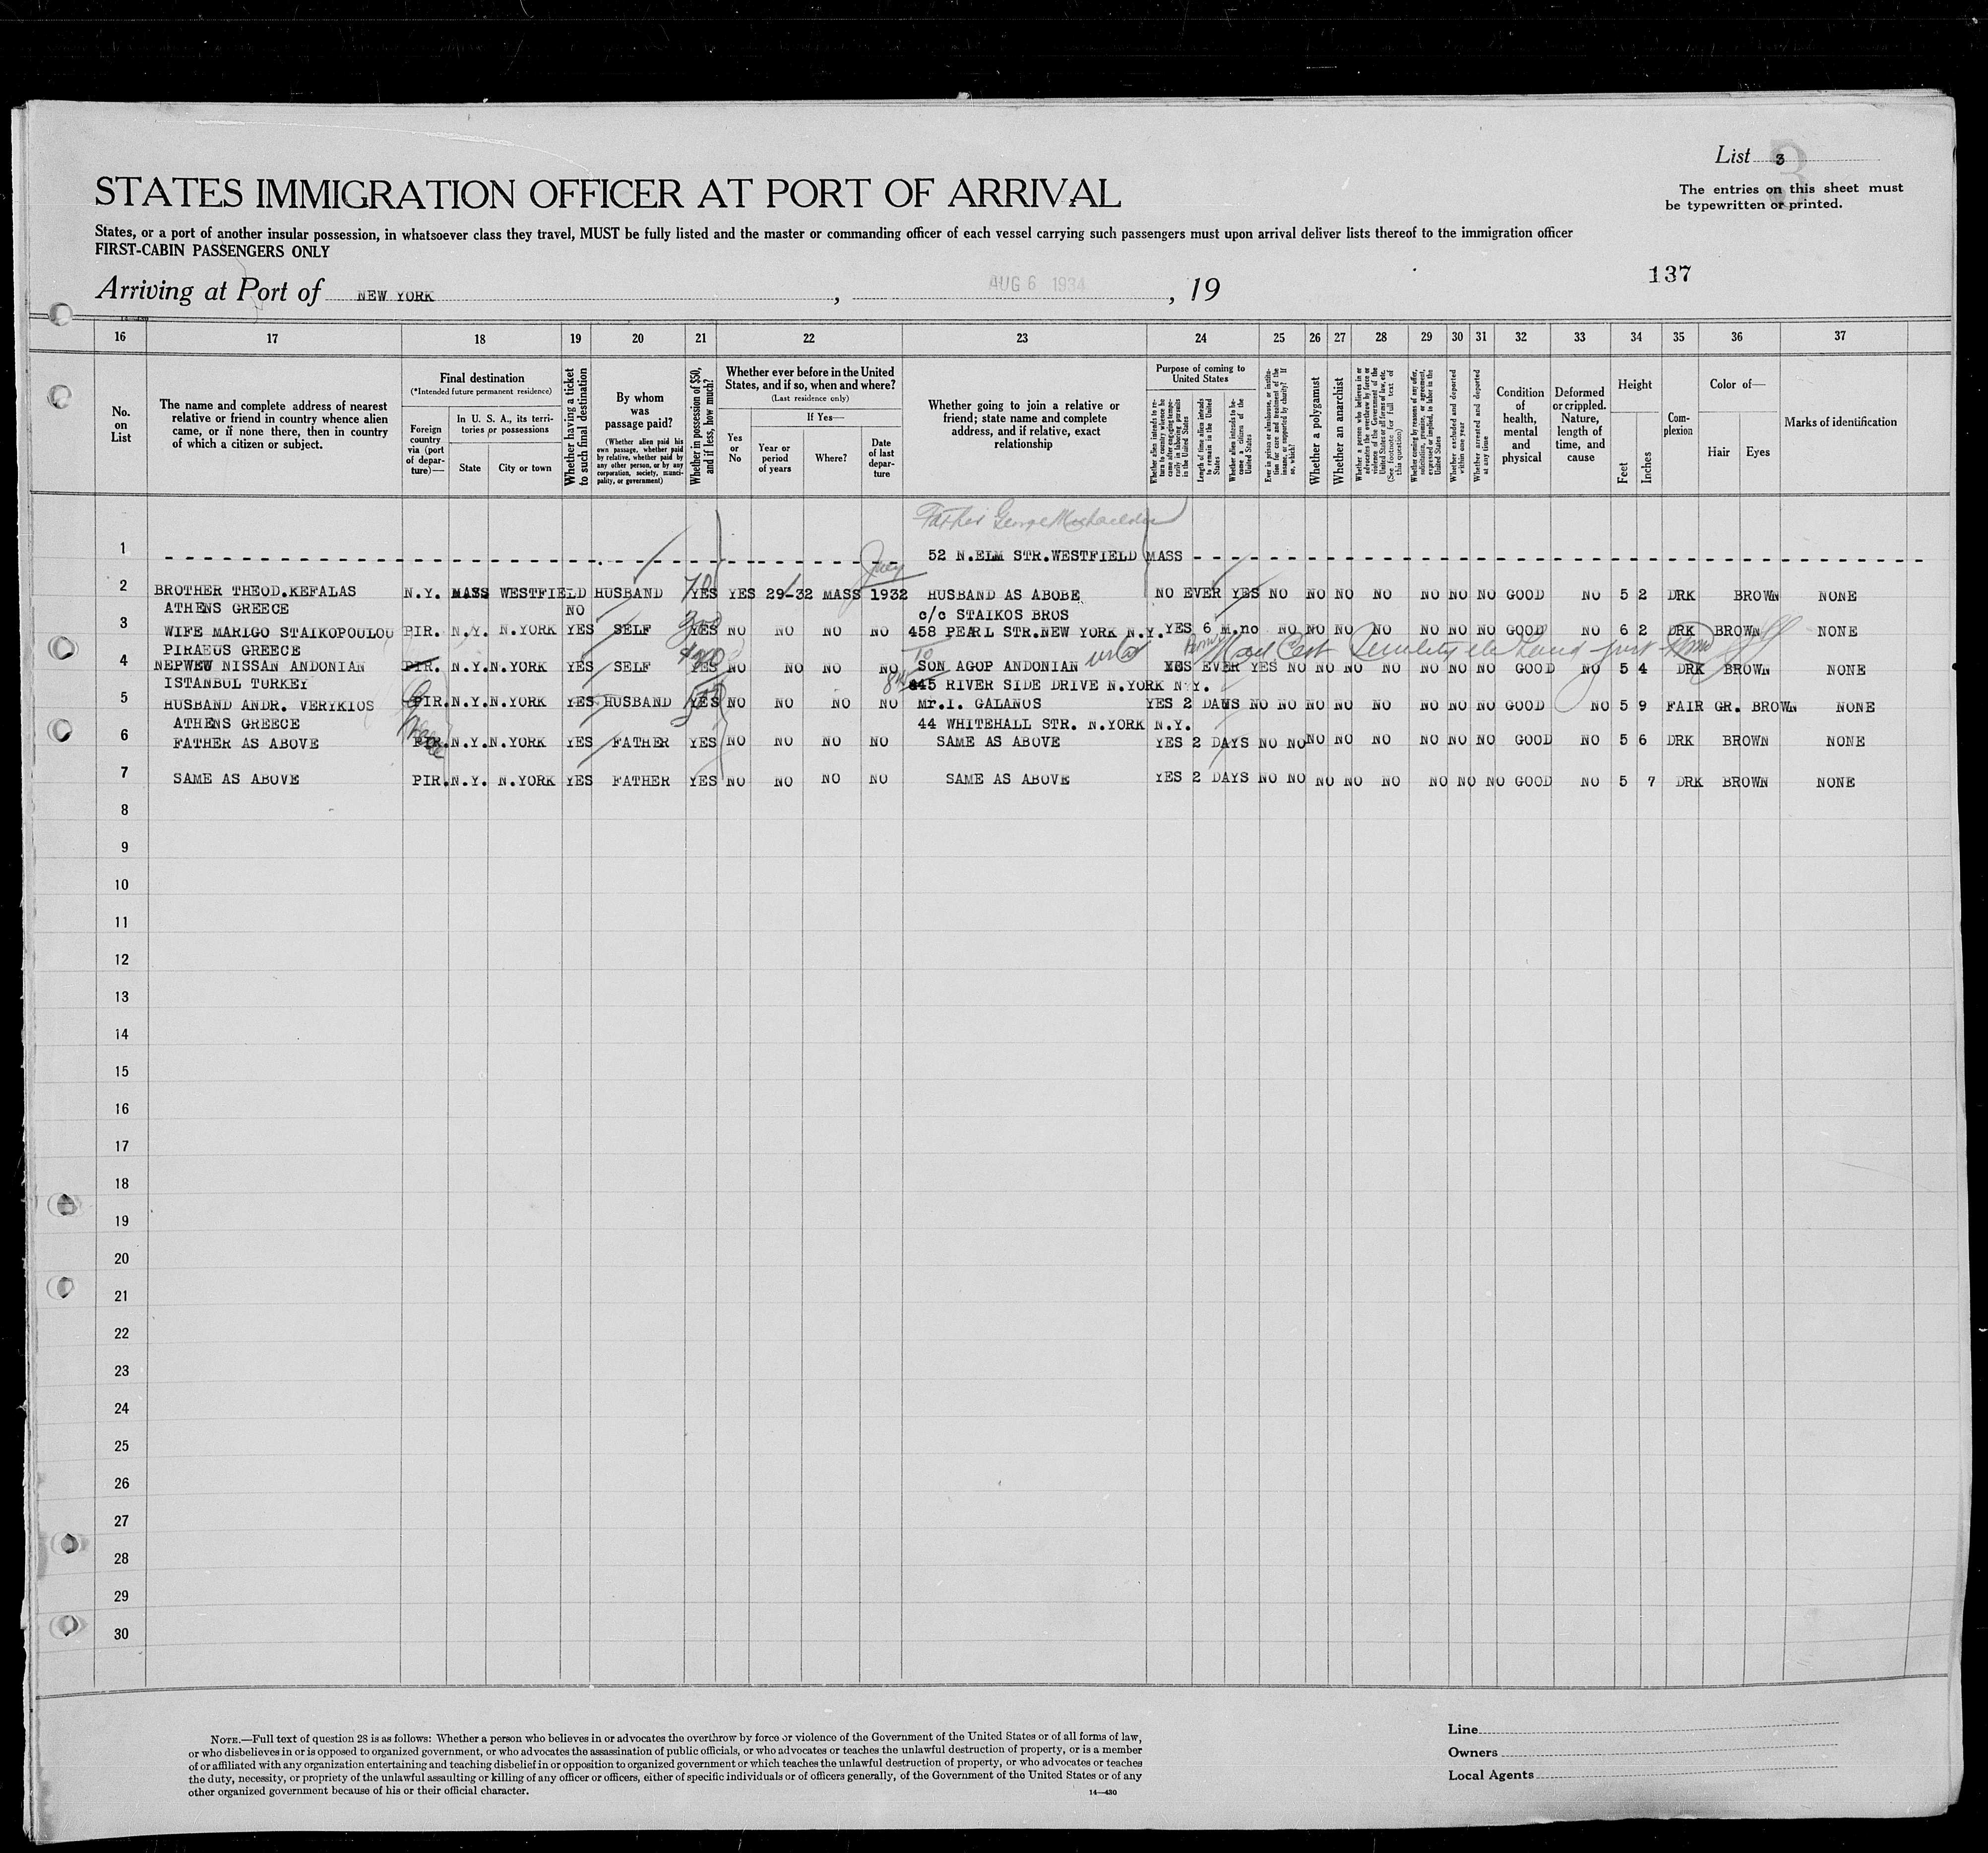 List 3
3
The entries on this sheet must
be typewritten or printed.
STATES IMMIGRATION OFFICER AT PORT OF ARRIVAL
States, or a port of another insular possession, in whatsoever class they travel, MUST be fully listed and the master or commanding officer of each vessel carrying such passengers must upon arrival deliver lists thereof to the immigration officer
FIRST-CABIN PASSENGERS ONLY
137
Arriving at Port of NEW YORK , AUG 6 1934 , 19
16 17 18 19 20 21 22 23 24 25 26 27 28 29 30 31 32 33 34 35 36 37
No. on List
The name and complete address of nearest relative or friend in country whence alien came, or if none there, then in country of which a citizen or subject.
Final destination
(*Intended future permanent residence)
Foreign country via (port of departure)—
In U. S. A., its territories or possessions
State
City or town
Whether having a ticket to such final destination
By whom was passage paid?
(Whether alien paid his own passage, whether paid by relative, whether paid by any other person, or by any corporation, society, municipality, or government)
Whether in possession of $50, and if less, how much?
Whether ever before in the United States, and if so, when and where?
(Last residence only)
Yes or No
If Yes—
Year or period of years
Where?
Date of last departure
Whether going to join a relative or friend; state name and complete address, and if relative, exact relationship
Purpose of coming to United States
Whether alien intends to return to country whence he came after engaging temporarily in laboring pursuits in the United States
Length of time alien intends to remain in the United States
Whether alien intends to become a citizen of the United States
Ever in prison or almshouse, or institution for care and treatment of the insane, or supported by charity? If so, which?
Whether a polygamist
Whether an anarchist
Whether a person who believes in or advocates the overthrow by force or violence of the Government of the United States or all forms of law, etc. (See footnote for full text of this question)
Whether coming by reasons of any offer, solicitation, promise, or agreement, expressed or implied, to labor in the United States
Whether excluded and deported within one year
Whether arrested and deported at any time
Condition of health, mental and physical
Deformed or crippled. Nature, length of time, and cause
Height
Feet
Inches
Complexion
Color of—
Hair
Eyes
Marks of identification
Father George
1 52 N.ELM STR.WESTFIELD MASS
July
2 BROTHER THEOD.KEFALAS N.Y. MASS WESTFIELD HUSBAND YES YES 29-32 MASS 1932 HUSBAND AS ABOBE NO EVER YES NO NO NO NO NO NO NO GOOD NO 5 2 DRK BROWN NONE
ATHENS GREECE NO c/c STAIKOS BROS
3 WIFE MARIGO STAIKOPOULOU PIR. N.Y. N.YORK YES SELF YES NO NO NO NO 458 PEARL STR.NEW YORK N.Y. YES 6 M.no NO NO NO NO NO NO NO GOOD NO 6 2 DRK BROWN NONE
PIRAEUS GREECE
4 NEPWEW NISSAN ANDONIAN PIR. N.Y. N.YORK YES SELF YES NO NO NO NO SON AGOP ANDONIAN YES EVER YES NO NO NO NO NO NO NO GOOD NO 5 4 DRK BROWN NONE
ISTANBUL TURKEY 845 RIVER SIDE DRIVE N.YORK N.Y.
5 HUSBAND ANDR. VERYKIOS PIR. N.Y. N.YORK YES HUSBAND YES NO NO NO NO Mr.I. GALANOS YES 2 DAUS NO NO NO NO NO NO NO NO GOOD NO 5 9 FAIR GR. BROWN NONE
ATHENS GREECE 44 WHITEHALL STR. N.YORK N.Y.
6 FATHER AS ABOVE PIR. N.Y. N.YORK YES FATHER YES NO NO NO NO SAME AS ABOVE YES 2 DAYS NO NO NO NO NO NO NO NO GOOD NO 5 6 DRK BROWN NONE
7 SAME AS ABOVE PIR. N.Y. N.YORK YES FATHER YES NO NO NO NO SAME AS ABOVE YES 2 DAYS NO NO NO NO NO NO NO NO GOOD NO 5 7 DRK BROWN NONE
8
9
10
11
12
13
14
15
16
17
18
19
20
21
22
23
24
25
26
27
28
29
30
NOTE.—Full text of question 28 is as follows: Whether a person who believes in or advocates the overthrow by force or violence of the Government of the United States or of all forms of law,
or who disbelieves in or is opposed to organized government, or who advocates the assassination of public officials, or who advocates or teaches the unlawful destruction of property, or is a member
of or affiliated with any organization entertaining and teaching disbelief in or opposition to organized government or which teaches the unlawful destruction of property, or who advocates or teaches
the duty, necessity, or propriety of the unlawful assaulting or killing of any officer or officers, either of specific individuals or of officers generally, of the Government of the United States or of any
other organized government because of his or their official character.
14—430
Line
Owners
Local Agents